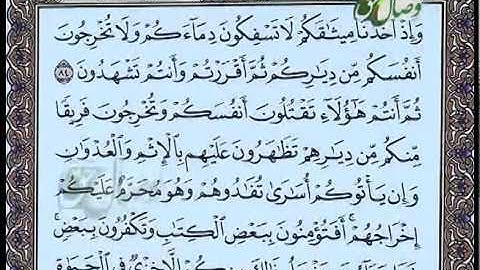 وصال
وَإِذْ أَخَذْنَا مِيثَٰقَكُمْ لَا تَسْفِكُونَ دِمَآءَكُمْ وَلَا تُخْرِجُونَ
أَنفُسَكُم مِّن دِيَٰرِكُمْ ثُمَّ أَقْرَرْتُمْ وَأَنتُمْ تَشْهَدُونَ ٨٤
ثُمَّ أَنتُمْ هَٰٓؤُلَآءِ تَقْتُلُونَ أَنفُسَكُمْ وَتُخْرِجُونَ فَرِيقًا
مِّنكُم مِّن دِيَٰرِهِمْ تَظَٰهَرُونَ عَلَيْهِم بِٱلْإِثْمِ وَٱلْعُدْوَٰنِ
وَإِن يَأْتُوكُمْ أُسَٰرَىٰ تُفَٰدُوهُمْ وَهُوَ مُحَرَّمٌ عَلَيْكُمْ
إِخْرَاجُهُمْ ۚ أَفَتُؤْمِنُونَ بِبَعْضِ ٱلْكِتَٰبِ وَتَكْفُرُونَ بِبَعْضٍ ۚ